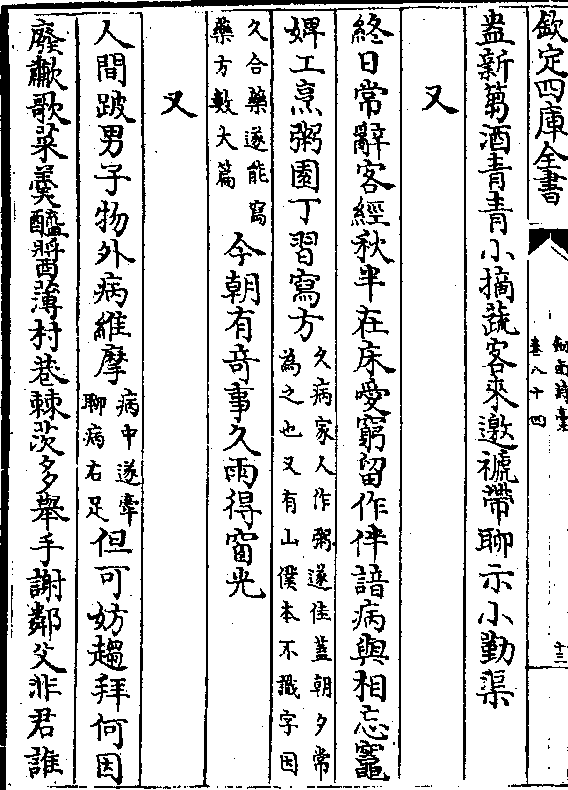 欽定四庫全書
劍南詩稾
卷八十四
十三
盎新篘酒青青小摘蔬客來邀褫帶聊示小勤渠
又
終日常辭客經秋半在床愛窮留作伴諳病與相忘竈
婢工烹粥園丁習寫方
久病家人作粥遂佳蓋朝夕常
為之也又有山僕本不識字因
久合藥遂能寫
藥方數大篇
今朝有竒事久雨得窗光
又
人間跛男子物外病維摩
病中遂牽
聊病右足
但可妨趨拜何因
廢歗歌菜羮醯醬薄村巷棘茨多舉手謝鄰父非君誰